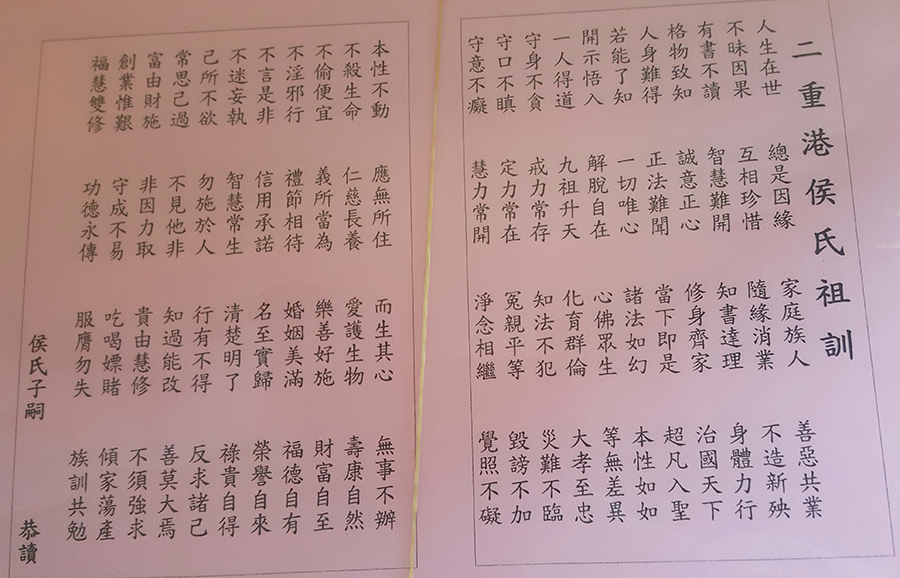 二重港侯氏祖訓
人生在世 總是因緣 家庭族人 善惡共業
不昧因果 互相珍惜 隨緣消業 不造新殃
有書不讀 智慧難開 知書達理 身體力行
格物致知 誠意正心 修身齊家 治國天下
人身難得 正法難聞 當下即是 超凡入聖
若能了知 一切唯心 諸法如幻 本性如如
開示悟入 解脫自在 心佛眾生 等無差異
一人得道 九祖升天 化育群倫 大孝至忠
守身不貪 戒力常存 知法不犯 災難不臨
守口不瞋 定力常在 冤親平等 毀謗不加
守意不癡 慧力常開 淨念相繼 覺照不礙
本性不動 應無所住 而生其心 無事不辦
不殺生命 仁慈長養 愛護生物 壽康自然
不偷便宜 義所當為 樂善好施 財富自至
不淫邪行 禮節相待 婚姻美滿 福德自有
不言是非 信用承諾 名至實歸 榮譽自來
不迷妄執 智慧常生 清楚明了 祿貴自得
己所不欲 勿施於人 行有不得 反求諸己
常思己過 不見他非 知過能改 善莫大焉
富由財施 非因力取 貴由慧修 不須強求
創業惟艱 守成不易 吃喝嫖賭 傾家蕩產
福慧雙修 功德永傳 服膺勿失 族訓共勉
侯氏子嗣 恭讀